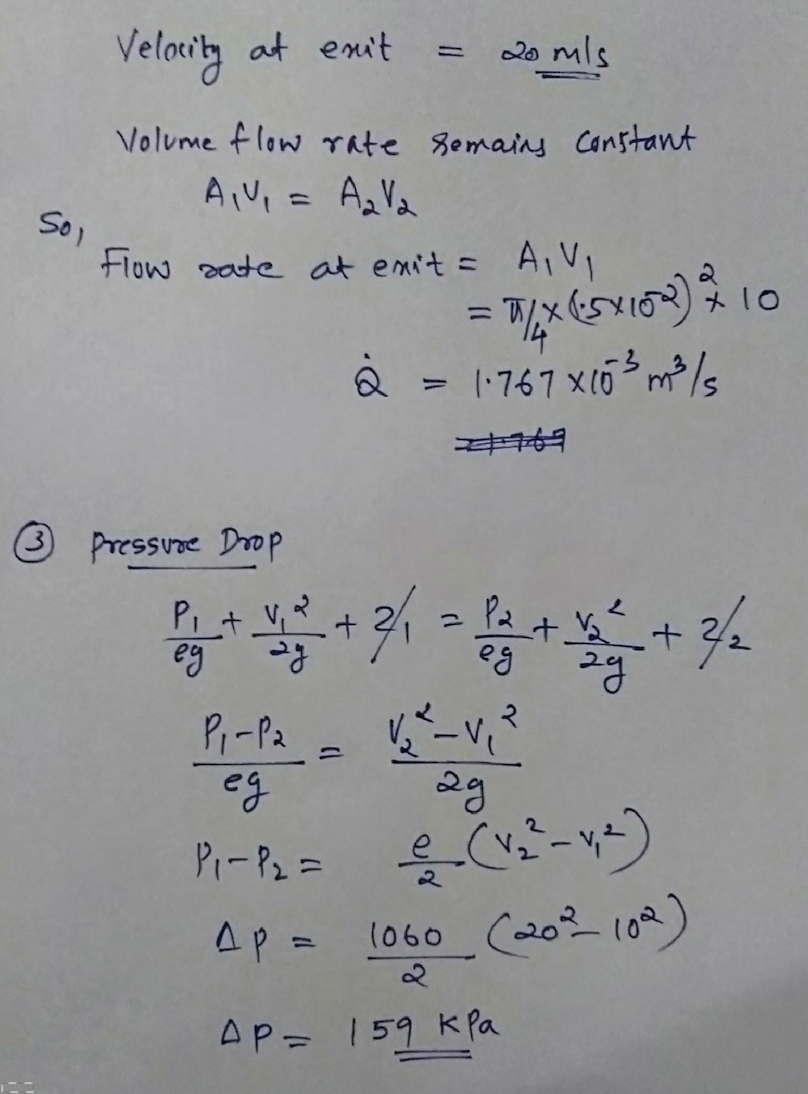 Velocity at exit = 20 m/s
Volume flow rate remains constant
A₁V₁ = A₂V₂
So,
Flow rate at exit = A₁V₁
= π/4 × (1.5×10⁻²)² × 10
Q̇ = 1.767 × 10⁻³ m³/s
③ Pressure Drop
P₁/ρg + V₁²/2g + Z₁ = P₂/ρg + V₂²/2g + Z₂
P₁-P₂/ρg = V₂²-V₁²/2g
P₁-P₂ = ρ/2 (V₂²-V₁²)
ΔP = 1060/2 (20²-10²)
ΔP = 159 KPa